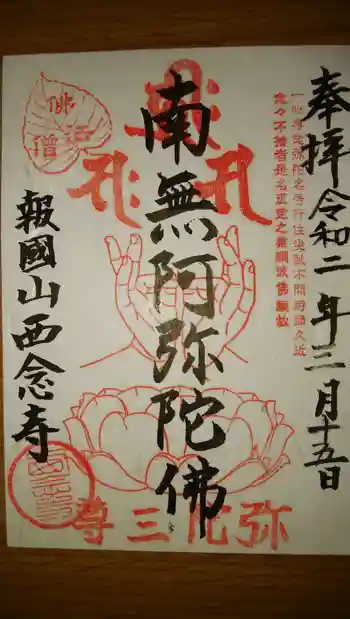 奉拝 令和二年三月十五日
一心專念弥陀名号行住坐臥不問時節久近
念々不捨者是名正定之業順彼佛願故
南無阿弥陀佛
弥陀三尊
報國山西念寺